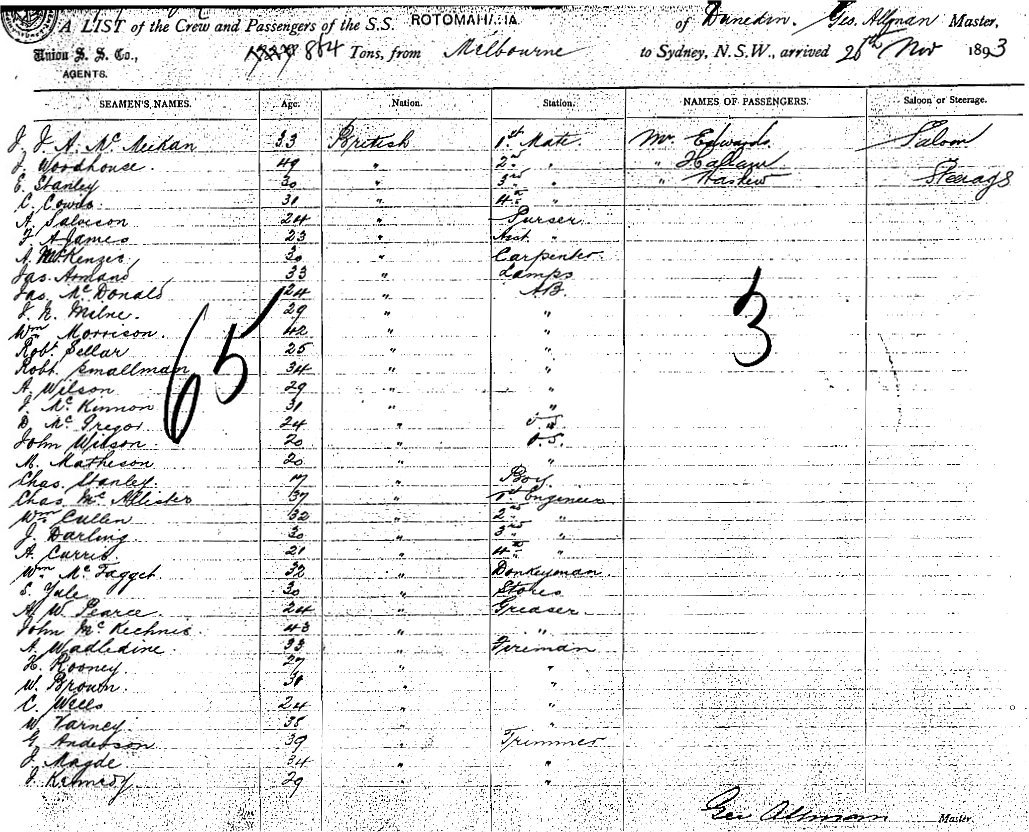 A LIST of the Crew and Passengers of the S.S. ROTOMAHANA of Dunedin. Geo. Allman Master,
Union S. S. Co., 864 Tons, from Melbourne to Sydney, N.S.W., arrived 26th Nov 1893
AGENTS.
SEAMEN'S NAMES. Age. Nation. Station. NAMES OF PASSENGERS. Saloon or Steerage.
J. J. A. Mc Meikan 33 British 1st Mate. Mr Edwards. Saloon
J. Woodhouse. 49 " 2nd " " Hallam
E. Stanley 30 " 3rd " " Steerage
C. Cowds 31 " 4th "
A. Salvison 24 " Purser.
F A James 23 " Asst. "
A. McKenzie 30 " Carpenter
Jas. Armand 33 " Lamps
Jas. Mc Donald 24 " AB.
J. R. Milne. 29 " "
Wm Morrison. 42 " "
Robt Sellar 25 " "
Robt. Smallman 34 " "
A. Wilson 29 " "
J. Mc Kinnon 31 " "
D. Mc Gregor 24 "
John Wilson 20 " O.S.
M. Matheson 20 " "
Chas. Stanley 17 " Boy
Chas. Mc Allister 37 " 1st Engineer
Wm Cullen 32 " 2nd "
J. Darling 30 " 3rd "
A. Currie 21 " 4th "
Wm. Mc Tagget 32 " Donkeyman
E. Yule 30 " Stores
A. W. Pearce. 24 " Greaser
John Mc Kechnie 43 " "
A. Wadledine 33 " Fireman
H. Rooney 27 " "
W. Brown. 31 " "
C. Wells 24 " "
W. Varney 38 " "
G. Anderson 39 " Trimmer
J. Magde 34 " "
J. Kennedy 29 " "
65
3
Geo Allman Master